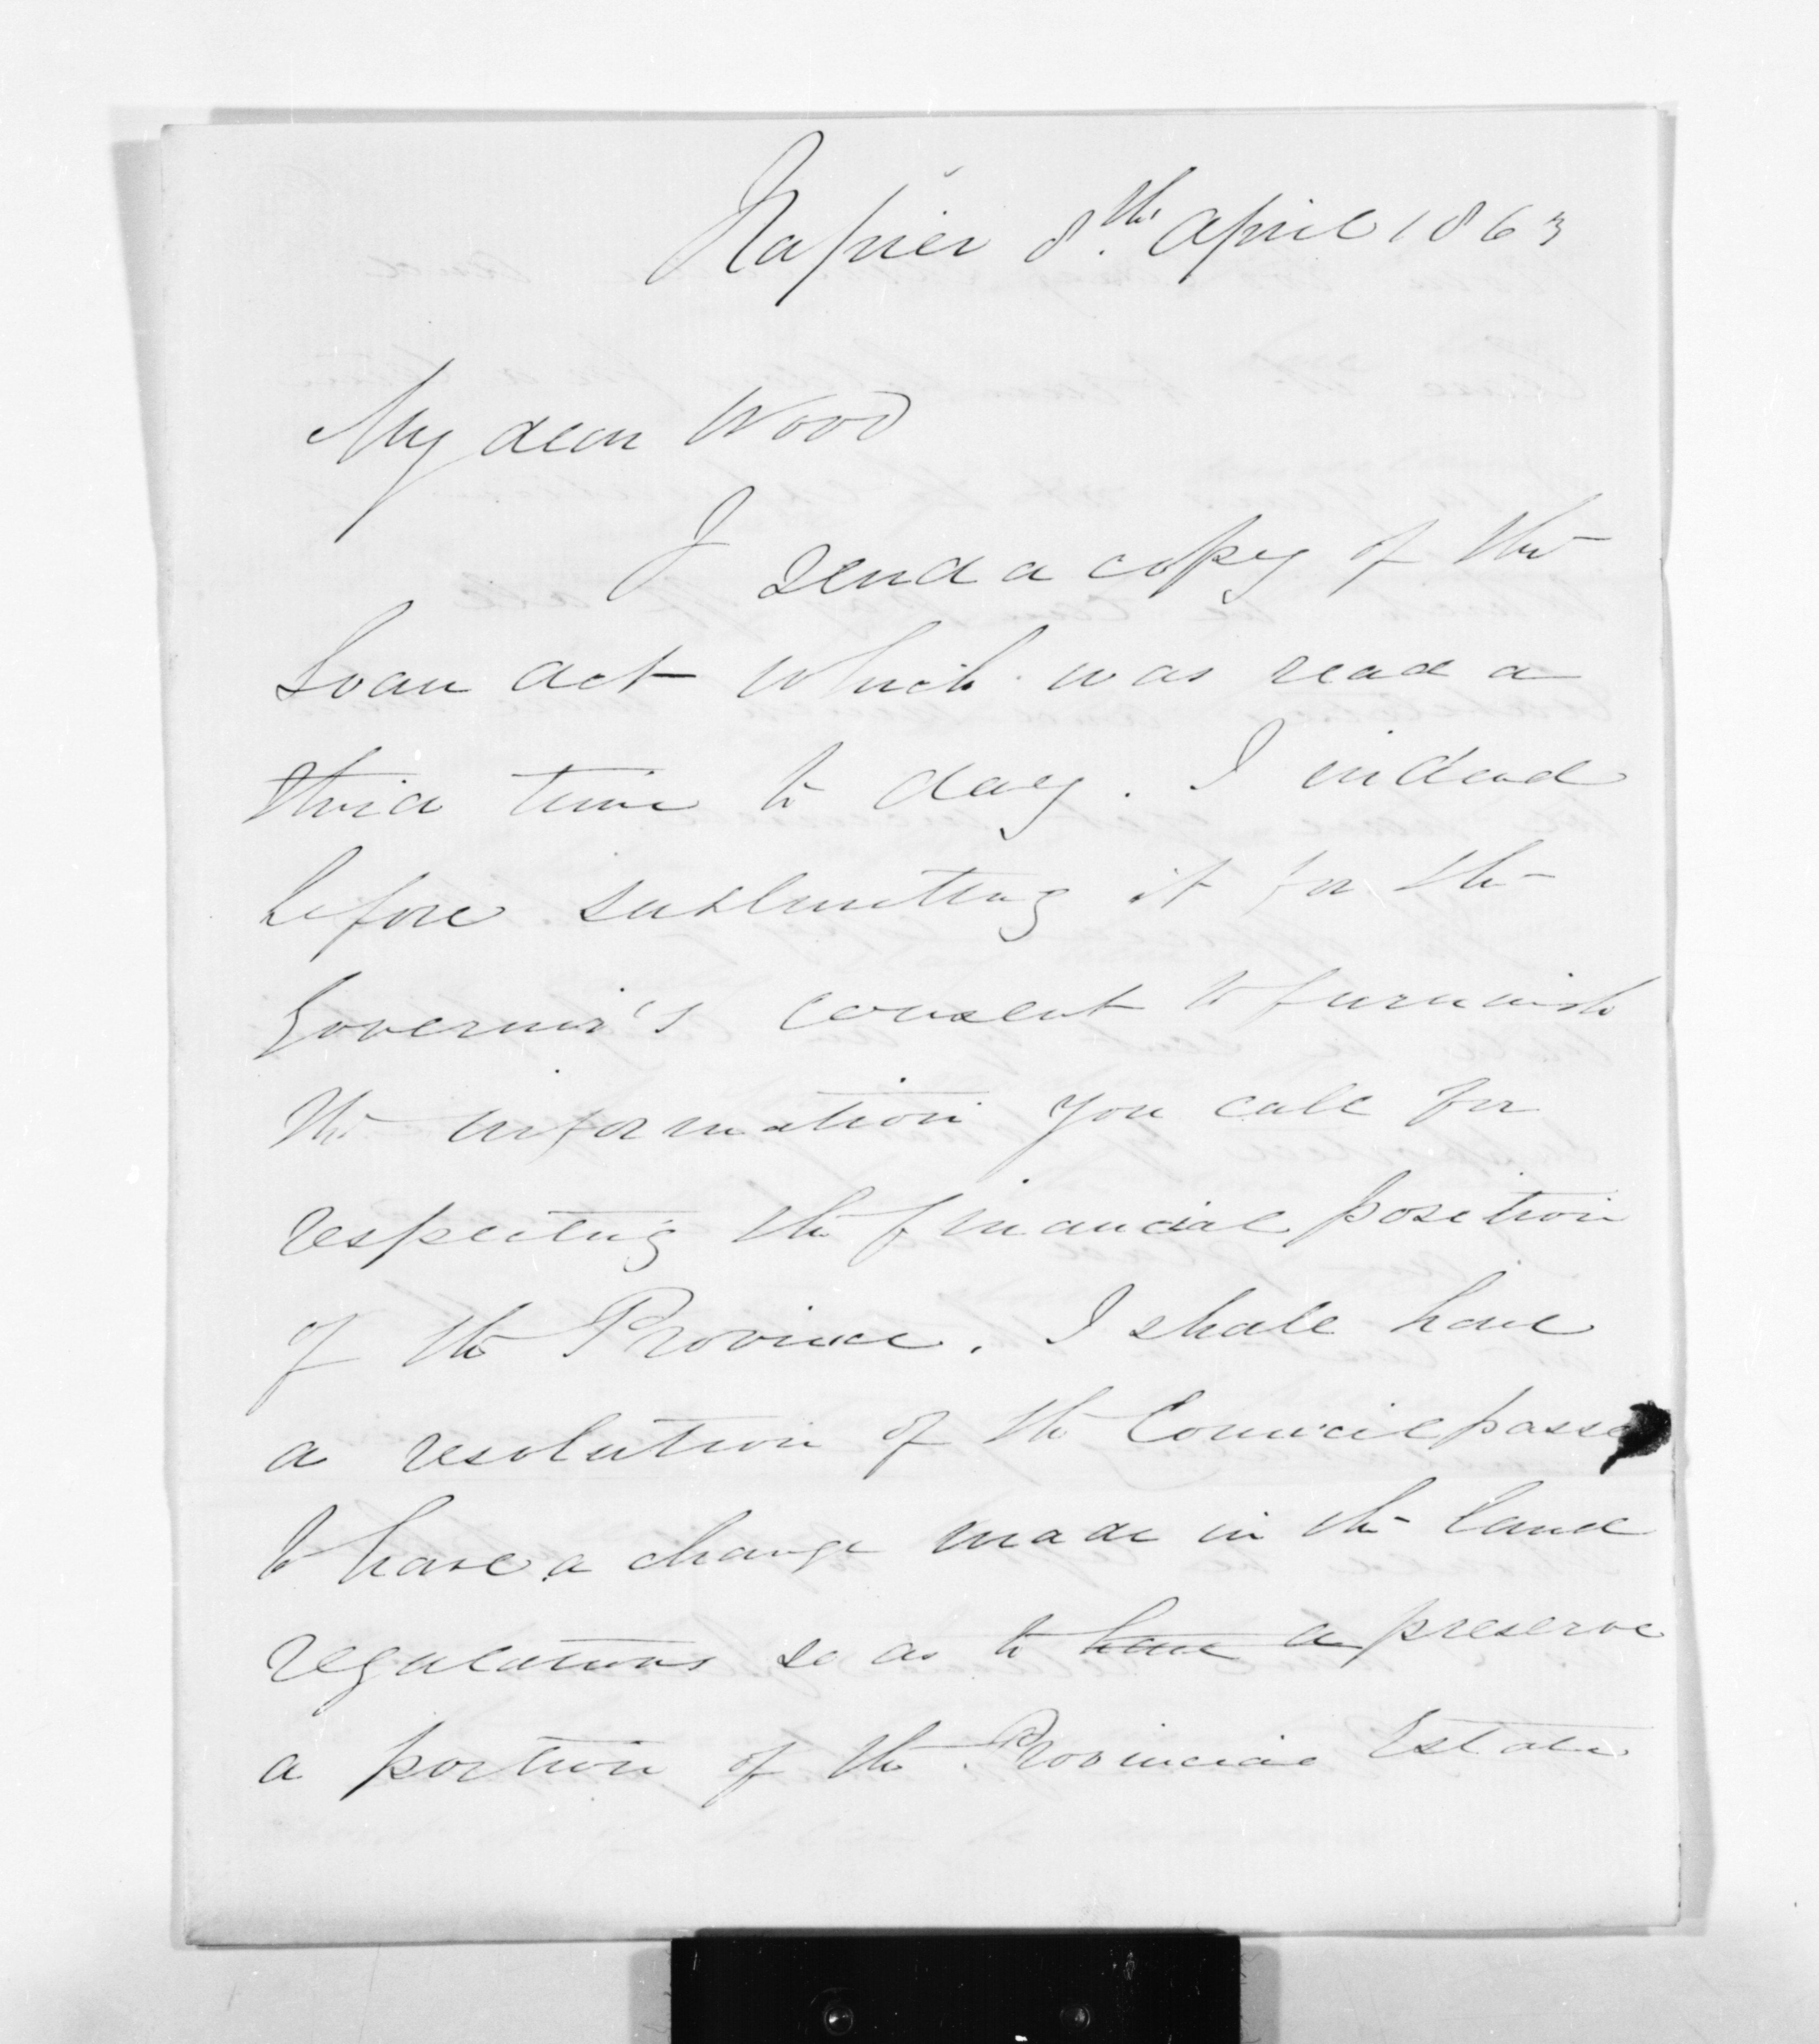 Napier 8th. April 1863
My dear Wood
I send a copy of the
Loan act which was read a
third time to day. I intend
before submitting it for the
Governor's consent to furnish
the information you call for
respecting the financial position
of the Province. I shall have
a resolution of the Council passed
to have a change made in the land
regulations so as to have a preserve
a portion of the Provincial Estate